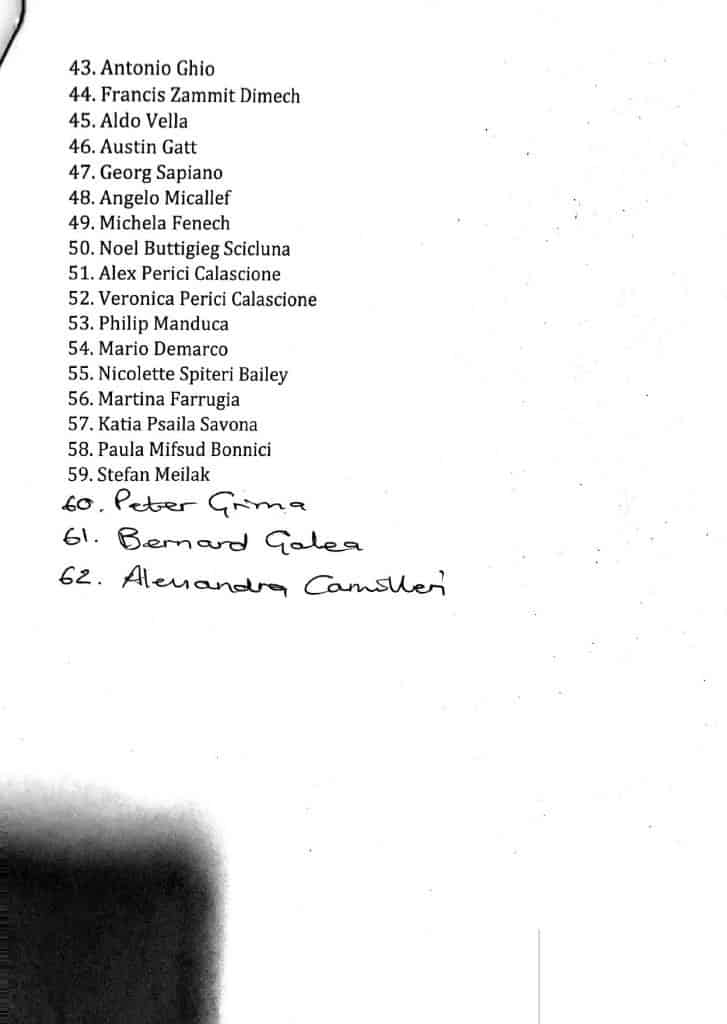 43. Antonio Ghio
44. Francis Zammit Dimech
45. Aldo Vella
46. Austin Gatt
47. Georg Sapiano
48. Angelo Micallef
49. Michela Fenech
50. Noel Buttigieg Scicluna
51. Alex Perici Calascione
52. Veronica Perici Calascione
53. Philip Manduca
54. Mario Demarco
55. Nicolette Spiteri Bailey
56. Martina Farrugia
57. Katia Psaila Savona
58. Paula Mifsud Bonnici
59. Stefan Meilak
60. Peter Grima
61. Bernard Galea
62. Alessandra Camilleri